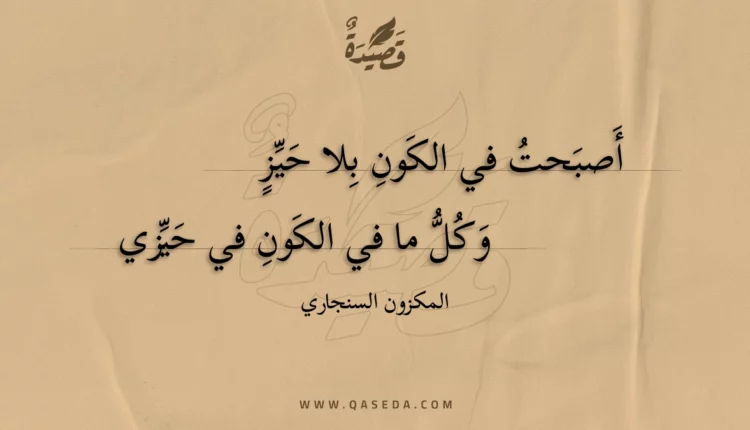 قَصِيدَةٌ
أَصبَحتُ في الكَونِ بِلا حَيِّزٍ
وَكُلُّ ما في الكَونِ في حَيِّزي
المكزون السنجاري
WWW.QASEDA.COM